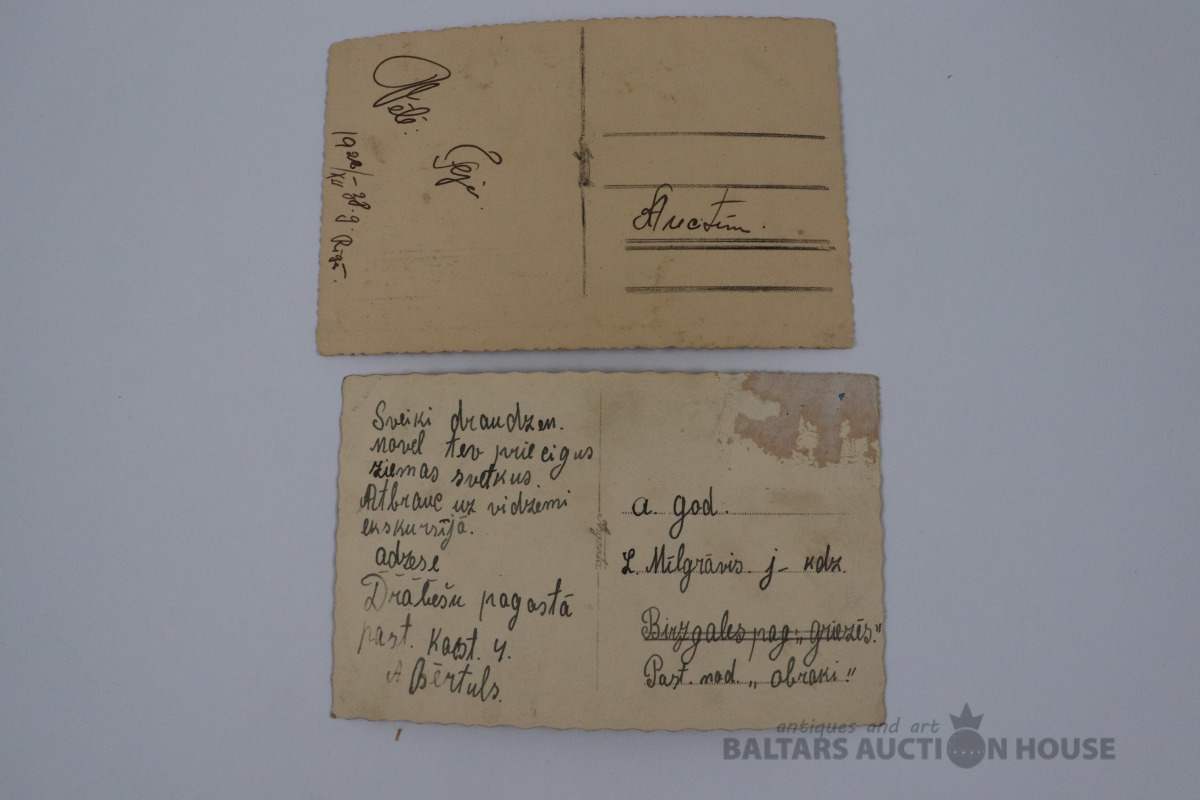 Vēlē:
1928/XII-38.g. Rīgā.
Austiņ.
Sveiki draudzen.
novel tev priecigus
ziemas svetkus.
Atbrauc uz vidzemi
ekskursījā.
adrese
Drābešu pagastā
past. Kast. 4.
A Bērtuls.
a. god.
L. Mīlgrāvis. j-kdz.
Birzgales pag. „griezēs."
Past. nod. „obraki"
antiques and art
BALTARS AUCTION HOUSE